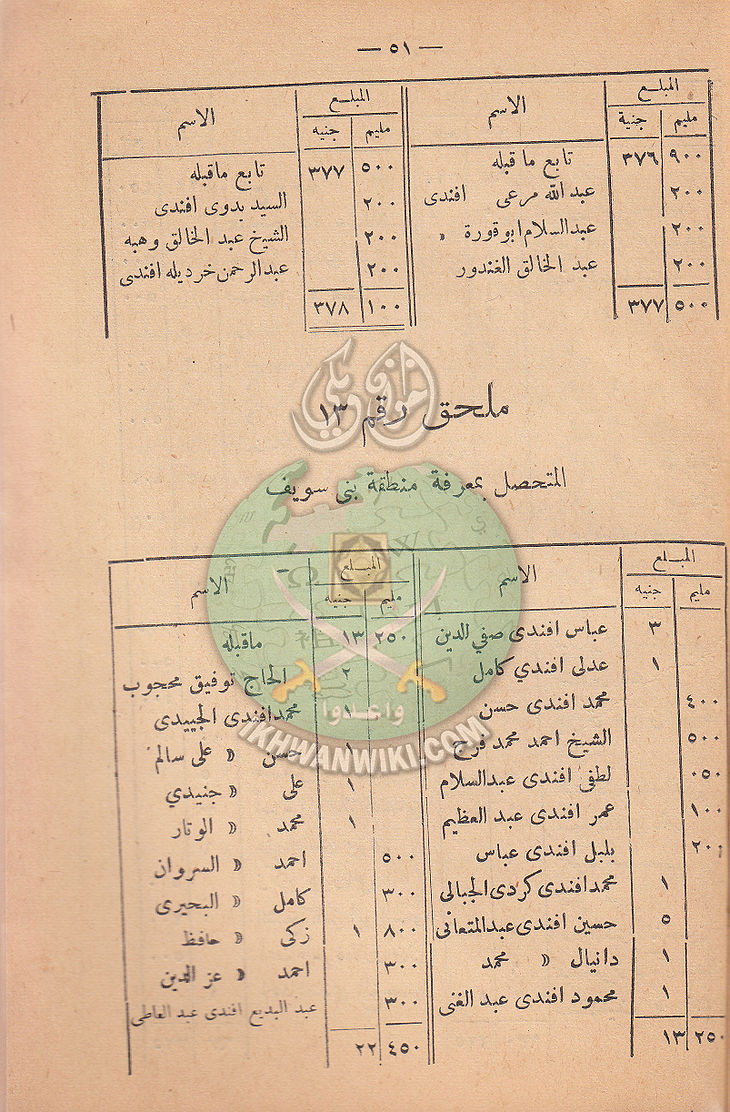 — ٥١ —
المبلغ الاسم
مليم جنية
٩٠٠ ٣٧٦ تابع ما قبله
٢٠٠ عبد الله مرعى افندى
٢٠٠ عبد السلام ابو قورة »
٢٠٠ عبد الخالق الغندور
٥٠٠ ٣٧٧
المبلغ الاسم
مليم جنيه
٥٠٠ ٣٧٧ تابع ماقبله
٢٠٠ السيد بدوى افندى
٢٠٠ الشيخ عبد الخالق وهبه
٢٠٠ عبد الرحمن خرديله افندى
١٠٠ ٣٧٨
ملحق رقم ١٣
المتحصل بمعرفة منطقة بنى سويف
المبلغ الاسم
مليم جنيه
٣ عباس افندى صفي الدين
١ عدلى افندي كامل
٤٠٠ محمد افندى حسن
٥٠٠ الشيخ احمد محمد فرج
٠٥٠ لطفى افندى عبدالسلام
١٠٠ عمر افندى عبد العظيم
٢٠٠ بلبل افندى عباس
١ محمد افندى كردى الجبالى
٥ حسين افندى عبدالمتعانى
١ دانيال » محمد
١ محمود افندى عبد الغنى
٢٥٠ ١٣
المبلغ الاسم
مليم جنيه
٢٥٠ ١٣ ماقبله
٢ الحاج توفيق محجوب
١ محمد افندى الجبيدى
١ حسن » على سالم
١ على » جنيدي
١ محمد » الوتار
٥٠٠ احمد » السروان
٣٠٠ كامل » البحيرى
٨٠٠ ١ زكى » حافظ
٣٠٠ احمد » عز الدين
٣٠٠ عبد البديع افندى عبد العاطى
٤٥٠ ٢٢
إخوان ويكي
واعدوا
IKHWANWIKI.COM